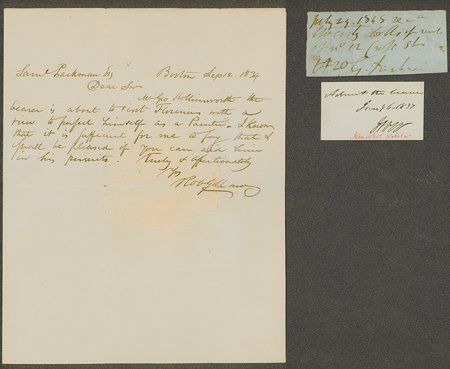 Saml Parkman Esq Boston Sep 12. 1834
Dear Sir
Mr Geo. Hollinsworth the
bearer is about to visit Florence with a
view to perfect himself as a Painter. I know
that it is sufficient for me to say that I
shall be pleased if you can aid him
in his pursuits. Truly & affectionately
Yrs
Rob G Shaw
July 29. 1848
Twenty dollars
Admit the bearer
Jany 6. 1837